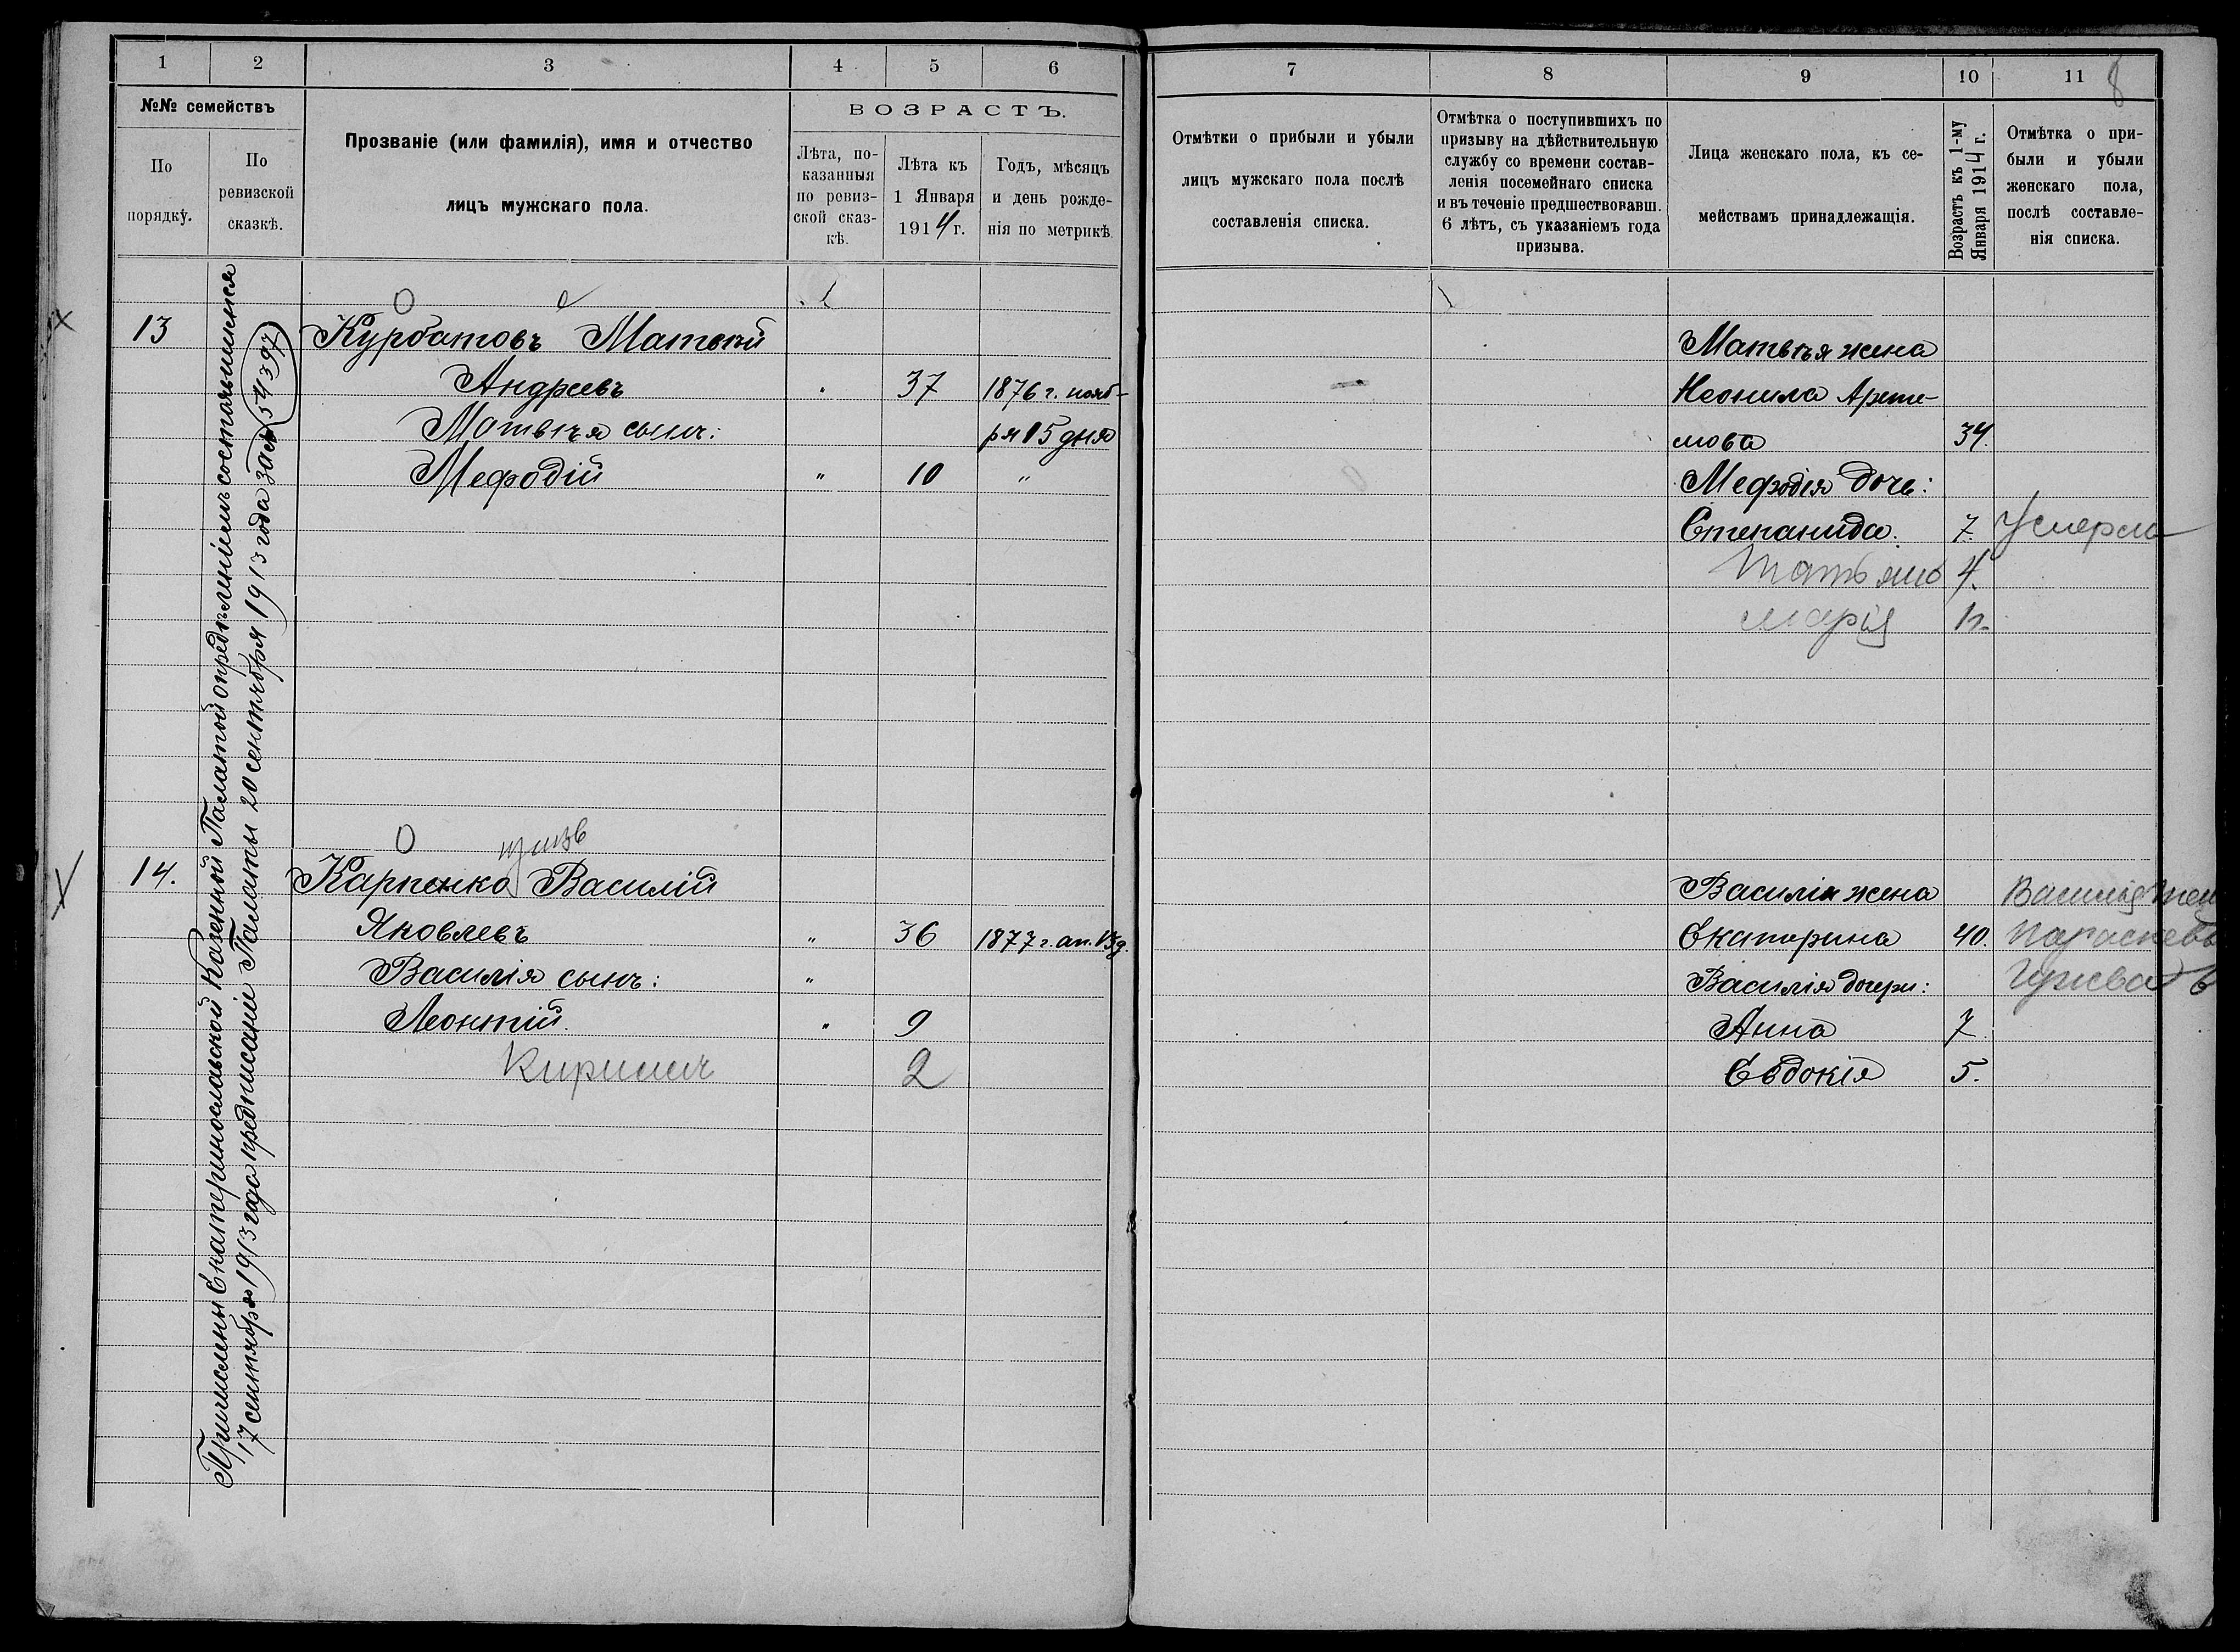 1 2 3 4 5 6
№№ семействъ
По порядку.
По ревизской сказкѣ.
Прозваніе (или фамилія), имя и отчество
лицъ мужскаго пола.
ВОЗРАСТЪ.
Лѣта, по-
казанныя
по ревиз-
ской сказ-
кѣ.
Лѣта къ
1 Января
1914 г.
Годъ, мѣсяцъ
и день рожде-
нія по метрикѣ.
Причислены Екатеринославской Казенной Палатой опредѣленіемъ состоявшимся
17 сентября 1913 года предписаніе Палаты 20 сентября 1913 года за № 54397
13 Курбатовъ Матвѣй
Андреевъ " 37 1876 г. нояб-
Матвѣя сынъ: ря 15 дня
Мефодій " 10 "
14. Карпенко Василій
Яковлевъ " 36 1877 г. ап. 13 д.
Василія сынъ: "
Леонтій. " 9
Кириллъ 2
7 8 9 10 11
8
Отмѣтки о прибыли и убыли
лицъ мужскаго пола послѣ
составленія списка.
Отмѣтка о поступившихъ по
призыву на дѣйствительную
службу со времени состав-
ленія посемейнаго списка
и въ теченіе предшествовавш.
6 лѣтъ, съ указаніемъ года
призыва.
Лица женскаго пола, къ се-
мействамъ принадлежащія.
Возрастъ къ 1-му
Января 1914 г.
Отмѣтка о при-
были и убыли
женскаго пола,
послѣ составле-
нія списка.
Матвѣя жена
Неонила Арте-
мова 34.
Мефодія дочь:
Степанида. 7. Умерла
Татьяна 4.
Марія
Василія жена Василія жен
Екатерина 40.
Василія дочери:
Анна 7
Евдокія 5.